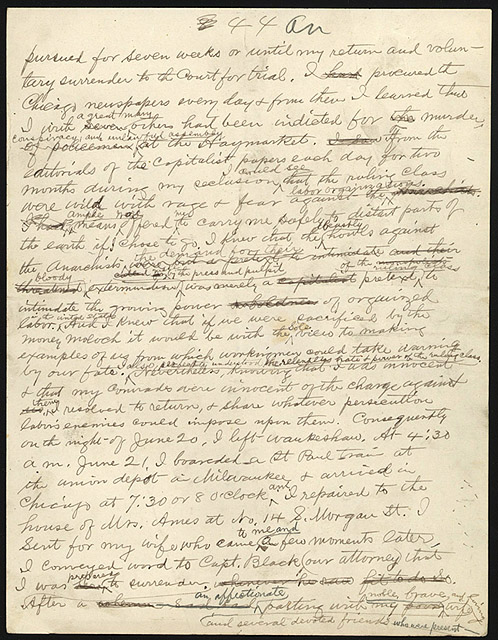 44 An
pursued for seven weeks or until my return and volun-
tary surrender to the Court for trial. I had procured the
Chicago newspapers every day & from them I learned that
a great many
I with seven others had been indicted for the murder
conspiracy and unlawful assembly
of policemen at the Haymarket. From the
editorials of the Capitalist papers each day for two
could see
months during my seclusion, I that the ruling class
labor organizations
were wild with rage & fear against the
ample
I had, means offered me to carry me safely to distant parts of
the earth if I chose to go. I knew that the howls against
the Anarchists, the demand for their
the press and pulpit
bloody extermination, was merely a pretext to
of the ruling class
intimidate the growing power of organized
labor. And I knew that if we were sacrificed by the
sole
money moloch it would be with the view to making
examples of us from which workingmen could take warning
by our fate. Nevertheless, knowing that I was innocent
& that my Comrades were innocent of the charge against
them
I resolved to return, & share whatever persecution
labor's enemies could impose upon them. Consequently
on the night of June 20, I left Waukeshaw. At 4:30
a.m. June 21, I boarded a St Paul train at
the union depot in Milwaukee & arrived in
Chicago at 7:30 or 8 o'clock am, I repaired to the
house of Mrs. Ames at No. 14 S. Morgan St. I
to me and
Sent for my wife who came a few moments later.
I conveyed word to Capt. Black (our attorney) that
prepared
I was to surrender.
an affectionate noble, brave, and loving
After a parting with my wife
and several devoted friends who were present